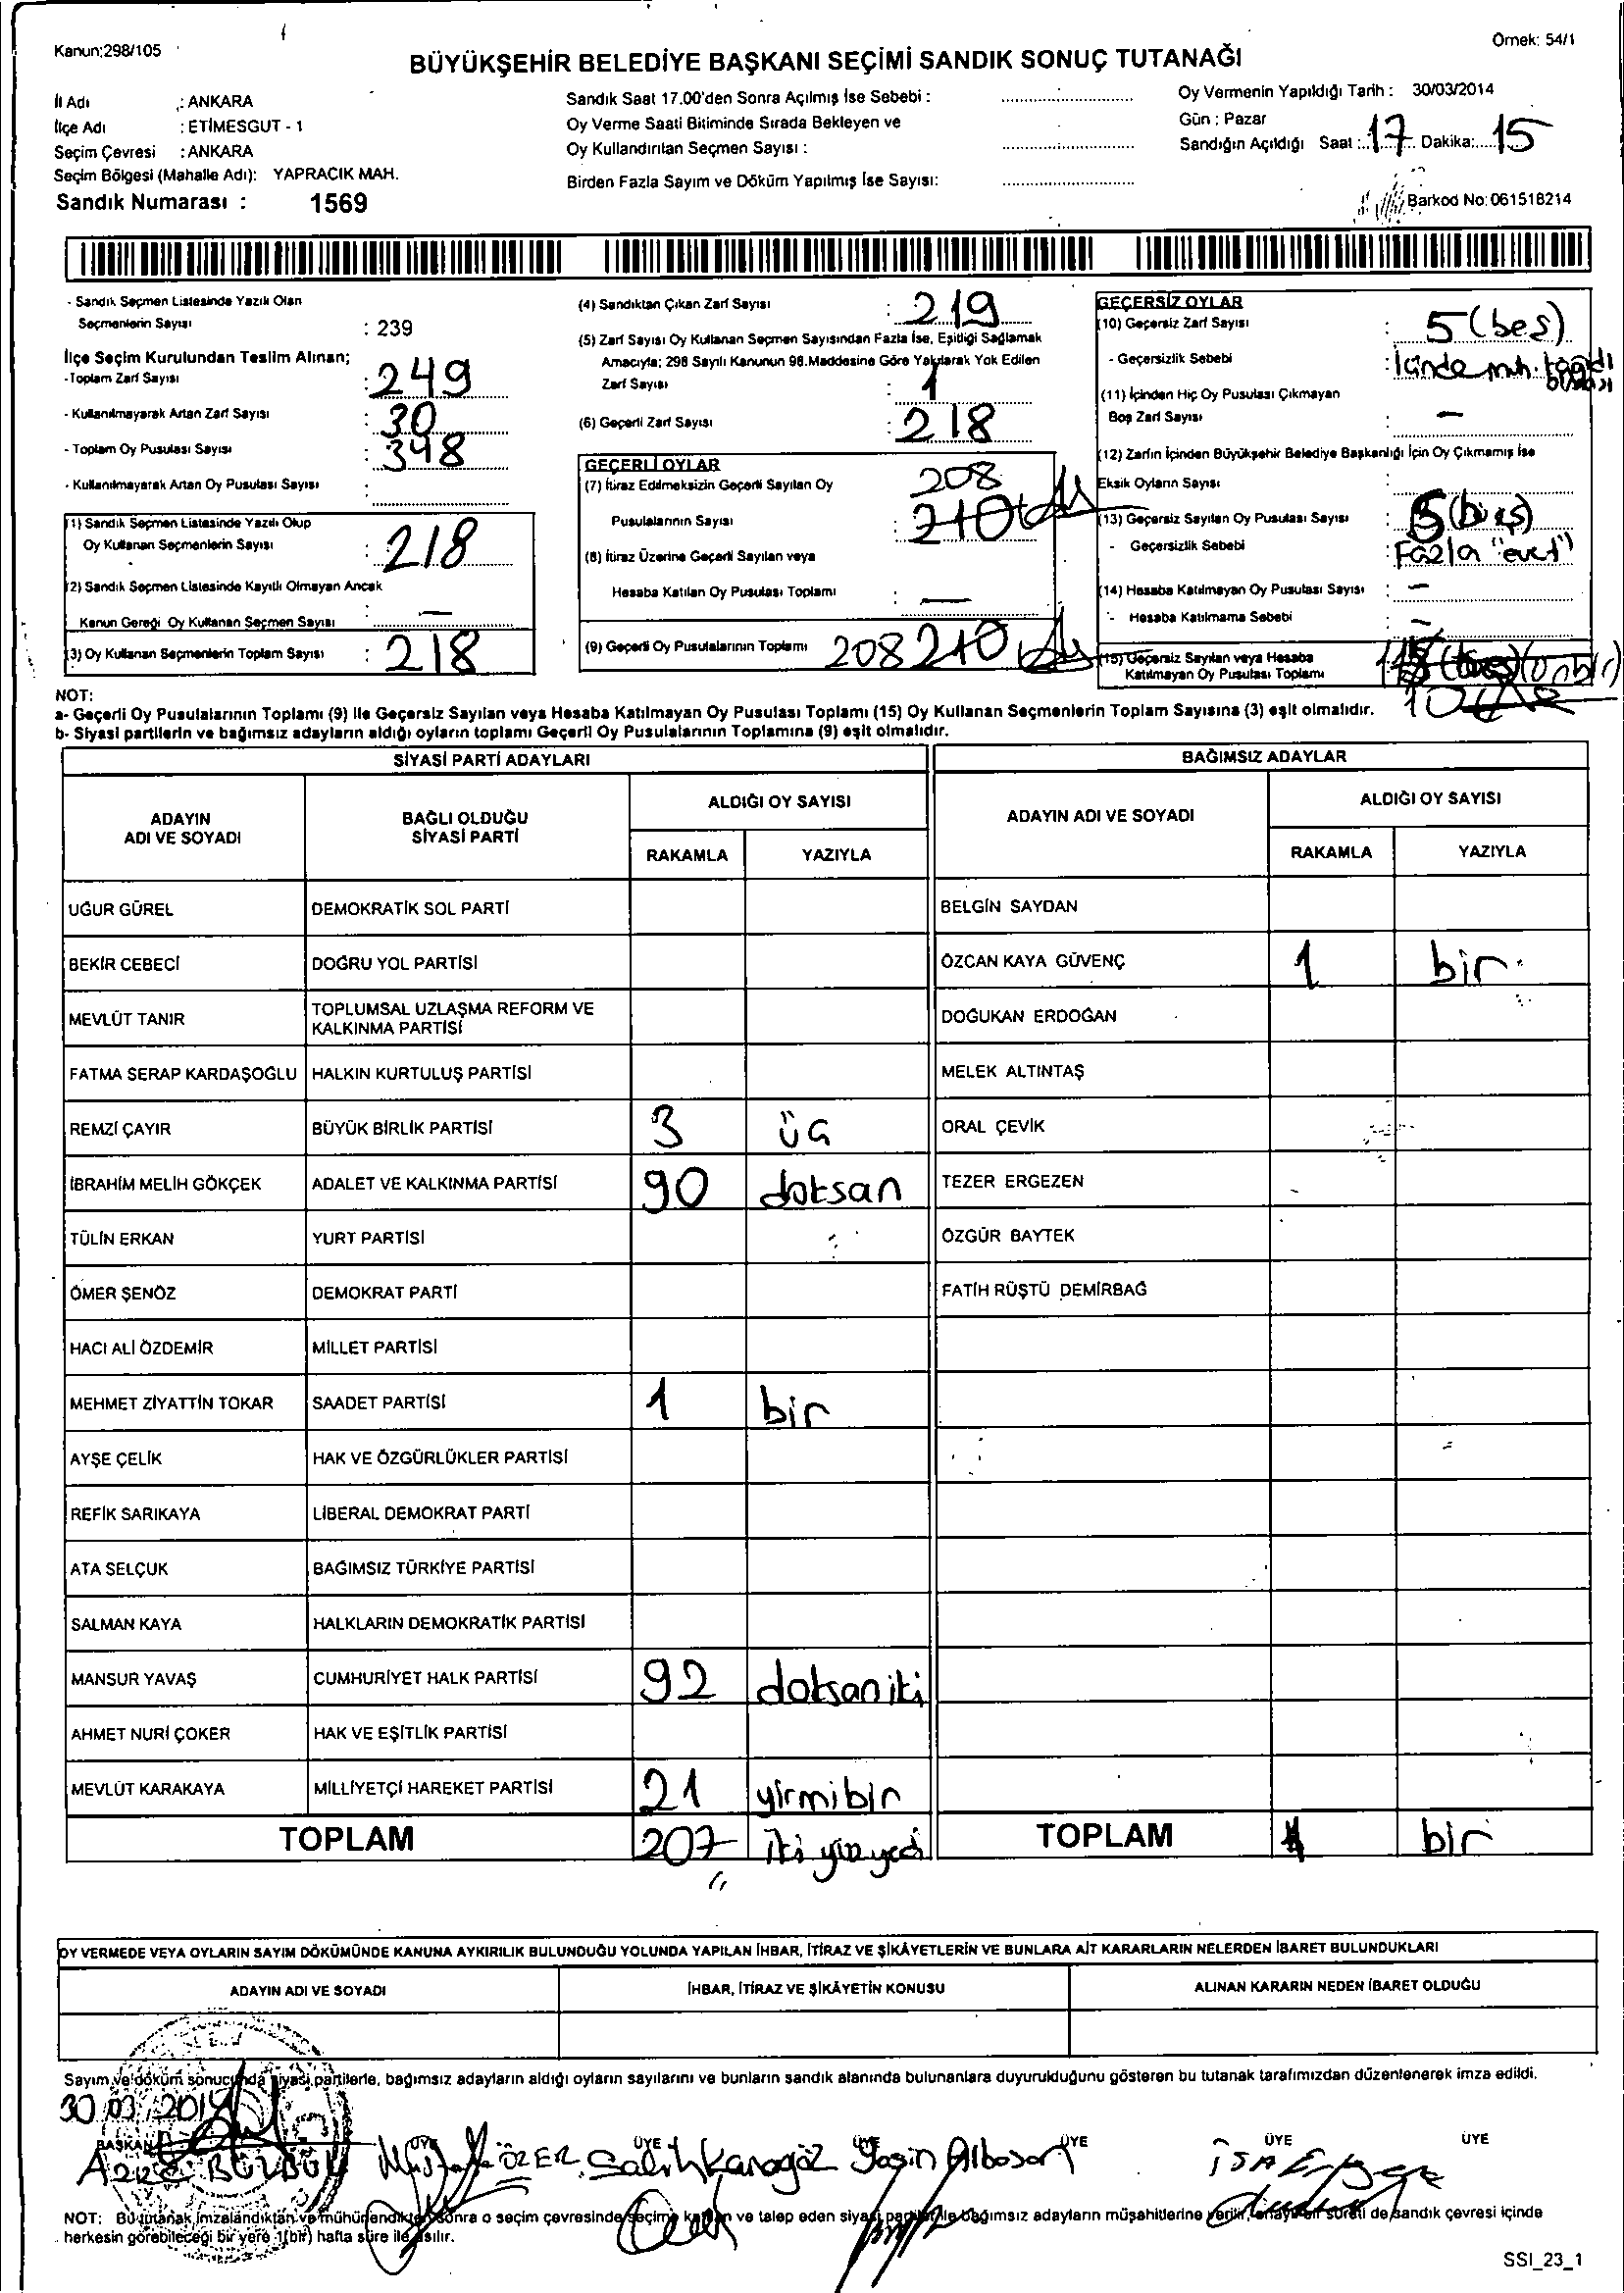 Kanun;298/105
Örnek: 54/1
BÜYÜKŞEHİR BELEDİYE BAŞKANI SEÇİMİ SANDIK SONUÇ TUTANAĞI
İl Adı : ANKARA
İlçe Adı : ETİMESGUT - 1
Seçim Çevresi : ANKARA
Seçim Bölgesi (Mahalle Adı): YAPRACIK MAH.
Sandık Numarası : 1569
Sandık Saat 17.00'den Sonra Açılmış İse Sebebi :
Oy Verme Saati Bitiminde Sırada Bekleyen ve
Oy Kullandırılan Seçmen Sayısı :
Birden Fazla Sayım ve Döküm Yapılmış İse Sayısı:
Oy Vermenin Yapıldığı Tarih : 30/03/2014
Gün : Pazar
Sandığın Açıldığı Saat : 17 Dakika: 15
Barkod No: 061518214
- Sandık Seçmen Listesinde Yazılı Olan
Seçmenlerin Sayısı : 239
İlçe Seçim Kurulundan Teslim Alınan;
-Toplam Zarf Sayısı : 249
- Kullanılmayarak Artan Zarf Sayısı : 30
- Toplam Oy Pusulası Sayısı : 348
- Kullanılmayarak Artan Oy Pusulası Sayısı :
(1) Sandık Seçmen Listesinde Yazılı Olup
Oy Kullanan Seçmenlerin Sayısı : 218
(2) Sandık Seçmen Listesinde Kayıtlı Olmayan Ancak
Kanun Gereği Oy Kullanan Seçmen Sayısı : —
(3) Oy Kullanan Seçmenlerin Toplam Sayısı : 218
(4) Sandıktan Çıkan Zarf Sayısı : 219
(5) Zarf Sayısı Oy Kullanan Seçmen Sayısından Fazla İse, Eşitliği Sağlamak
Amacıyla; 298 Sayılı Kanunun 98.Maddesine Göre Yakılarak Yok Edilen
Zarf Sayısı : 1
(6) Geçerli Zarf Sayısı : 218
GEÇERLİ OYLAR
(7) İtiraz Edilmeksizin Geçerli Sayılan Oy 208
Pusulalarının Sayısı : 210
(8) İtiraz Üzerine Geçerli Sayılan veya
Hesaba Katılan Oy Pusulası Toplamı : —
(9) Geçerli Oy Pusulalarının Toplamı 208 210
GEÇERSİZ OYLAR
(10) Geçersiz Zarf Sayısı : 5 (beş)
- Geçersizlik Sebebi : İçinde mh.
(11) İçinden Hiç Oy Pusulası Çıkmayan
Boş Zarf Sayısı : —
(12) Zarfın İçinden Büyükşehir Belediye Başkanlığı İçin Oy Çıkmamış İse
Eksik Oyların Sayısı :
(13) Geçersiz Sayılan Oy Pusulası Sayısı : 5 (beş)
- Geçersizlik Sebebi : Fazla "evet"
(14) Hesaba Katılmayan Oy Pusulası Sayısı : —
- Hesaba Katılmama Sebebi : —
(15) Geçersiz Sayılan veya Hesaba
Katılmayan Oy Pusulası Toplamı
10
NOT:
a- Geçerli Oy Pusulalarının Toplamı (9) ile Geçersiz Sayılan veya Hesaba Katılmayan Oy Pusulası Toplamı (15) Oy Kullanan Seçmenlerin Toplam Sayısına (3) eşit olmalıdır.
b- Siyasi partilerin ve bağımsız adayların aldığı oyların toplamı Geçerli Oy Pusulalarının Toplamına (9) eşit olmalıdır.
SİYASİ PARTİ ADAYLARI
BAĞIMSIZ ADAYLAR
ADAYIN
ADI VE SOYADI
BAĞLI OLDUĞU
SİYASİ PARTİ
ALDIĞI OY SAYISI
RAKAMLA YAZIYLA
ADAYIN ADI VE SOYADI
ALDIĞI OY SAYISI
RAKAMLA YAZIYLA
UĞUR GÜREL DEMOKRATİK SOL PARTİ BELGİN SAYDAN
BEKİR CEBECİ DOĞRU YOL PARTİSİ ÖZCAN KAYA GÜVENÇ 1 bir
MEVLÜT TANIR TOPLUMSAL UZLAŞMA REFORM VE
KALKINMA PARTİSİ DOĞUKAN ERDOĞAN
FATMA SERAP KARDAŞOĞLU HALKIN KURTULUŞ PARTİSİ MELEK ALTINTAŞ
REMZİ ÇAYIR BÜYÜK BİRLİK PARTİSİ 3 üç ORAL ÇEVİK
İBRAHİM MELİH GÖKÇEK ADALET VE KALKINMA PARTİSİ 90 doksan TEZER ERGEZEN
TÜLİN ERKAN YURT PARTİSİ ÖZGÜR BAYTEK
ÖMER ŞENÖZ DEMOKRAT PARTİ FATİH RÜŞTÜ DEMİRBAĞ
HACI ALİ ÖZDEMİR MİLLET PARTİSİ
MEHMET ZİYATTİN TOKAR SAADET PARTİSİ 1 bir
AYŞE ÇELİK HAK VE ÖZGÜRLÜKLER PARTİSİ
REFİK SARIKAYA LİBERAL DEMOKRAT PARTİ
ATA SELÇUK BAĞIMSIZ TÜRKİYE PARTİSİ
SALMAN KAYA HALKLARIN DEMOKRATİK PARTİSİ
MANSUR YAVAŞ CUMHURİYET HALK PARTİSİ 92 doksaniki
AHMET NURİ ÇOKER HAK VE EŞİTLİK PARTİSİ
MEVLÜT KARAKAYA MİLLİYETÇİ HAREKET PARTİSİ 21 yirmibir
TOPLAM 207 ikiyüzyedi TOPLAM 1 bir
OY VERMEDE VEYA OYLARIN SAYIM DÖKÜMÜNDE KANUNA AYKIRILIK BULUNDUĞU YOLUNDA YAPILAN İHBAR, İTİRAZ VE ŞİKÂYETLERİN VE BUNLARA AİT KARARLARIN NELERDEN İBARET BULUNDUKLARI
ADAYIN ADI VE SOYADI İHBAR, İTİRAZ VE ŞİKÂYETİN KONUSU ALINAN KARARIN NEDEN İBARET OLDUĞU
Sayım ve döküm sonucunda siyasi partilerle, bağımsız adayların aldığı oyların sayılarını ve bunların sandık alanında bulunanlara duyurulduğunu gösteren bu tutanak tarafımızdan düzenlenerek imza edildi.
30.03.2014
BAŞKAN ÜYE ÜYE ÜYE ÜYE ÜYE ÜYE
Mustafa ÖZER Salih Karagöz Yasin Albosort İSA
NOT: Bu tutanak imzalandıktan ve mühürlendikten sonra o seçim çevresinde seçime katılan ve talep eden siyasi partiler ile bağımsız adayların müşahitlerine verilir, onaylı bir sureti de sandık çevresi içinde
herkesin görebileceği bir yere 1(bir) hafta süre ile asılır.
SSI_23_1